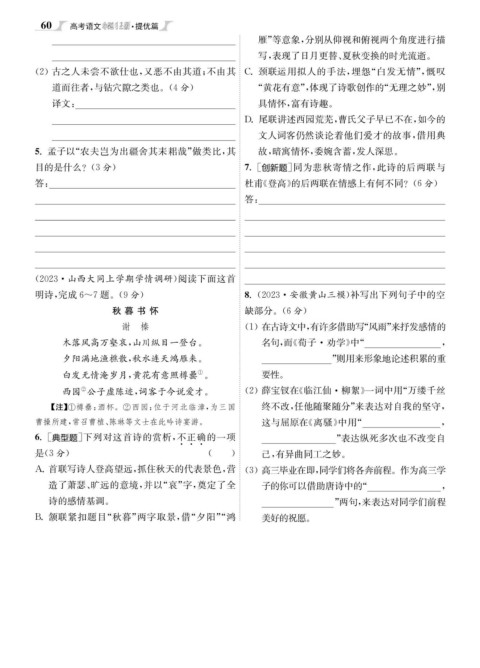 60 高考语文小题狂练·提优篇
(2) 古之人未尝不欲仕也,又恶不由其道;不由其
道而往者,与钻穴隙之类也。(4 分)
译文:
5. 孟子以“农夫岂为出疆舍其耒耜哉”做类比,其
目的是什么? (3 分)
答:
(2023·山西大同上学期学情调研)阅读下面这首
明诗,完成 6～7 题。(9 分)
秋暮书怀
谢 榛
木落风高万壑哀,山川纵目一登台。
夕阳满地渔樵散,秋水连天鸿雁来。
白发无情淹岁月,黄花有意照樽罍①。
西园②公子虚陈迹,词客于今说爱才。
【注】①樽罍:酒杯。②西园:位于河北临漳,为三国
曹操所建,常召曹植、陈琳等文士在此吟诗宴游。
6. [典型题]下列对这首诗的赏析,不正确的一项
是(3 分) ( )
A. 首联写诗人登高望远,抓住秋天的代表景色,营
造了萧瑟、旷远的意境,并以“哀”字,奠定了全
诗的感情基调。
B. 颔联紧扣题目“秋暮”两字取景,借“夕阳”“鸿
雁”等意象,分别从仰视和俯视两个角度进行描
写,表现了日月更替、夏秋变换的时光流逝。
C. 颈联运用拟人的手法,埋怨“白发无情”,慨叹
“黄花有意”,体现了诗歌创作的“无理之妙”,别
具情怀,富有诗趣。
D. 尾联讲述西园荒芜,曹氏父子早已不在,如今的
文人词客仍然谈论着他们爱才的故事,借用典
故,暗寓情怀,委婉含蓄,发人深思。
7. [创新题]同为悲秋寄情之作,此诗的后两联与
杜甫《登高》的后两联在情感上有何不同? (6 分)
答:
8. (2023·安徽黄山三模)补写出下列句子中的空
缺部分。(6 分)
(1) 在古诗文中,有许多借助写“风雨”来抒发感情的
名句,而《荀子·劝学》中“ ,
”则用来形象地论述积累的重
要性。
(2) 薛宝钗在《临江仙·柳絮》一词中用“万缕千丝
终不改,任他随聚随分”来表达对自我的坚守,
这与屈原在《离骚》中用“ ,
”表达纵死多次也不改变自
己,有异曲同工之妙。
(3) 高三毕业在即,同学们将各奔前程。作为高三学
子的你可以借助唐诗中的“ ,
”两句,来表达对同学们前程
美好的祝愿。